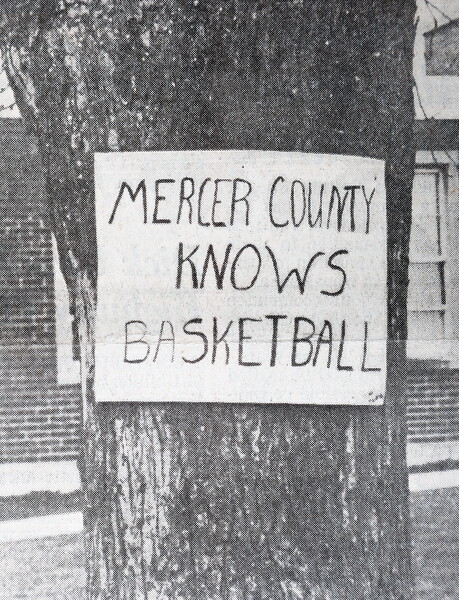 MERCER COUNTY
KNOWS
BASKETBALL